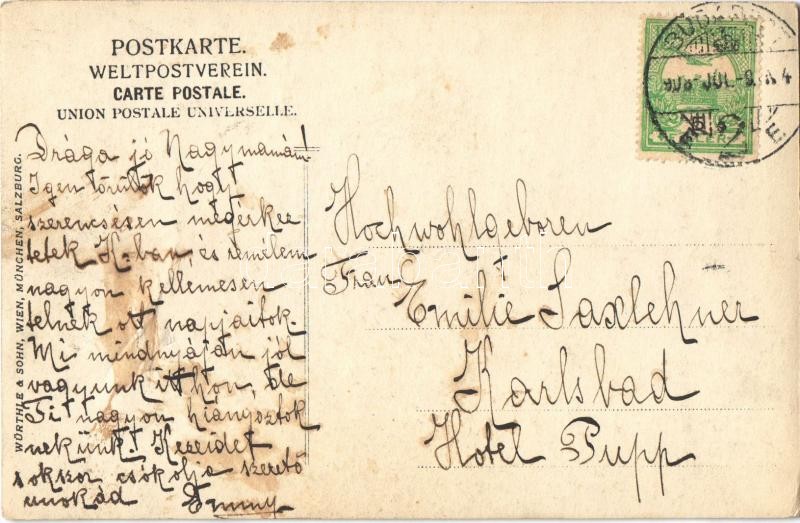 POSTKARTE.
WELTPOSTVEREIN.
CARTE POSTALE.
UNION POSTALE UNIVERSELLE.
Drága jó Nagymamám!
Igen örülök hogy
szerencsésen megérkez
tetek K.ban, és remélem
nagyon kellemesen
telnek ott napjaitok.
Mi mindnyáján jól
vagyunk itthon, de
Ti nagyon hiányoztok
nekünk! Kezeidet
sokszor csókolja szerető
unokád Emmy
Hochwohlgeboren
Frau
Emilie Saxlehner
Karlsbad
Hotel Pupp
WÜRTHLE & SOHN, WIEN, MÜNCHEN, SALZBURG.
BUDAPEST
908 JUL